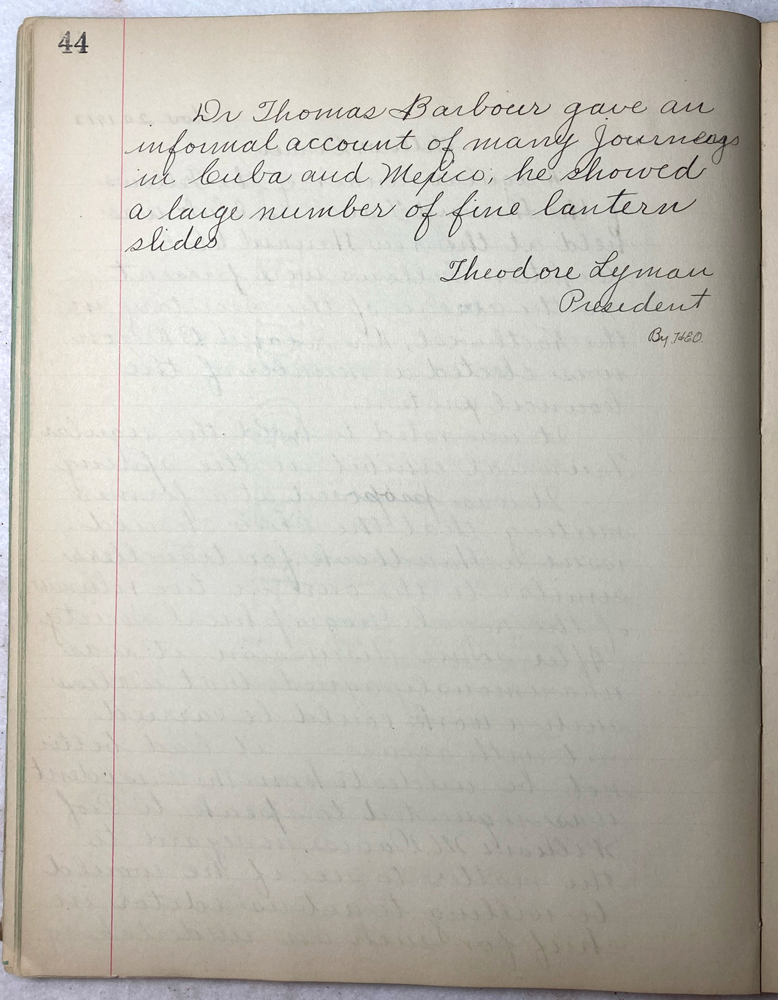 44
Dr Thomas Barbour gave an
informal account of many journeays
in Cuba and Mexico; he showed
a large number of fine lantern
slides
Theodore Lyman
President
By HEO.